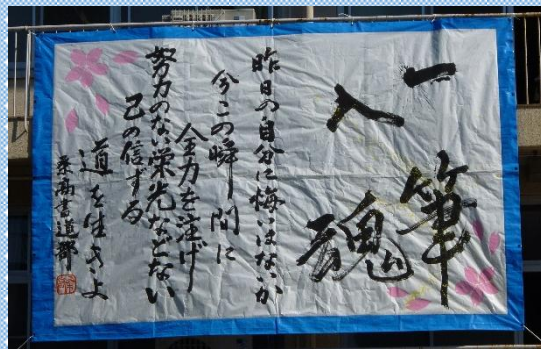 一筆
入魂
昨日の自分に悔いはないか
今この瞬間に
全力を注げ
努力のない栄光などない
己の信ずる
道を生きよ
桑高書道部